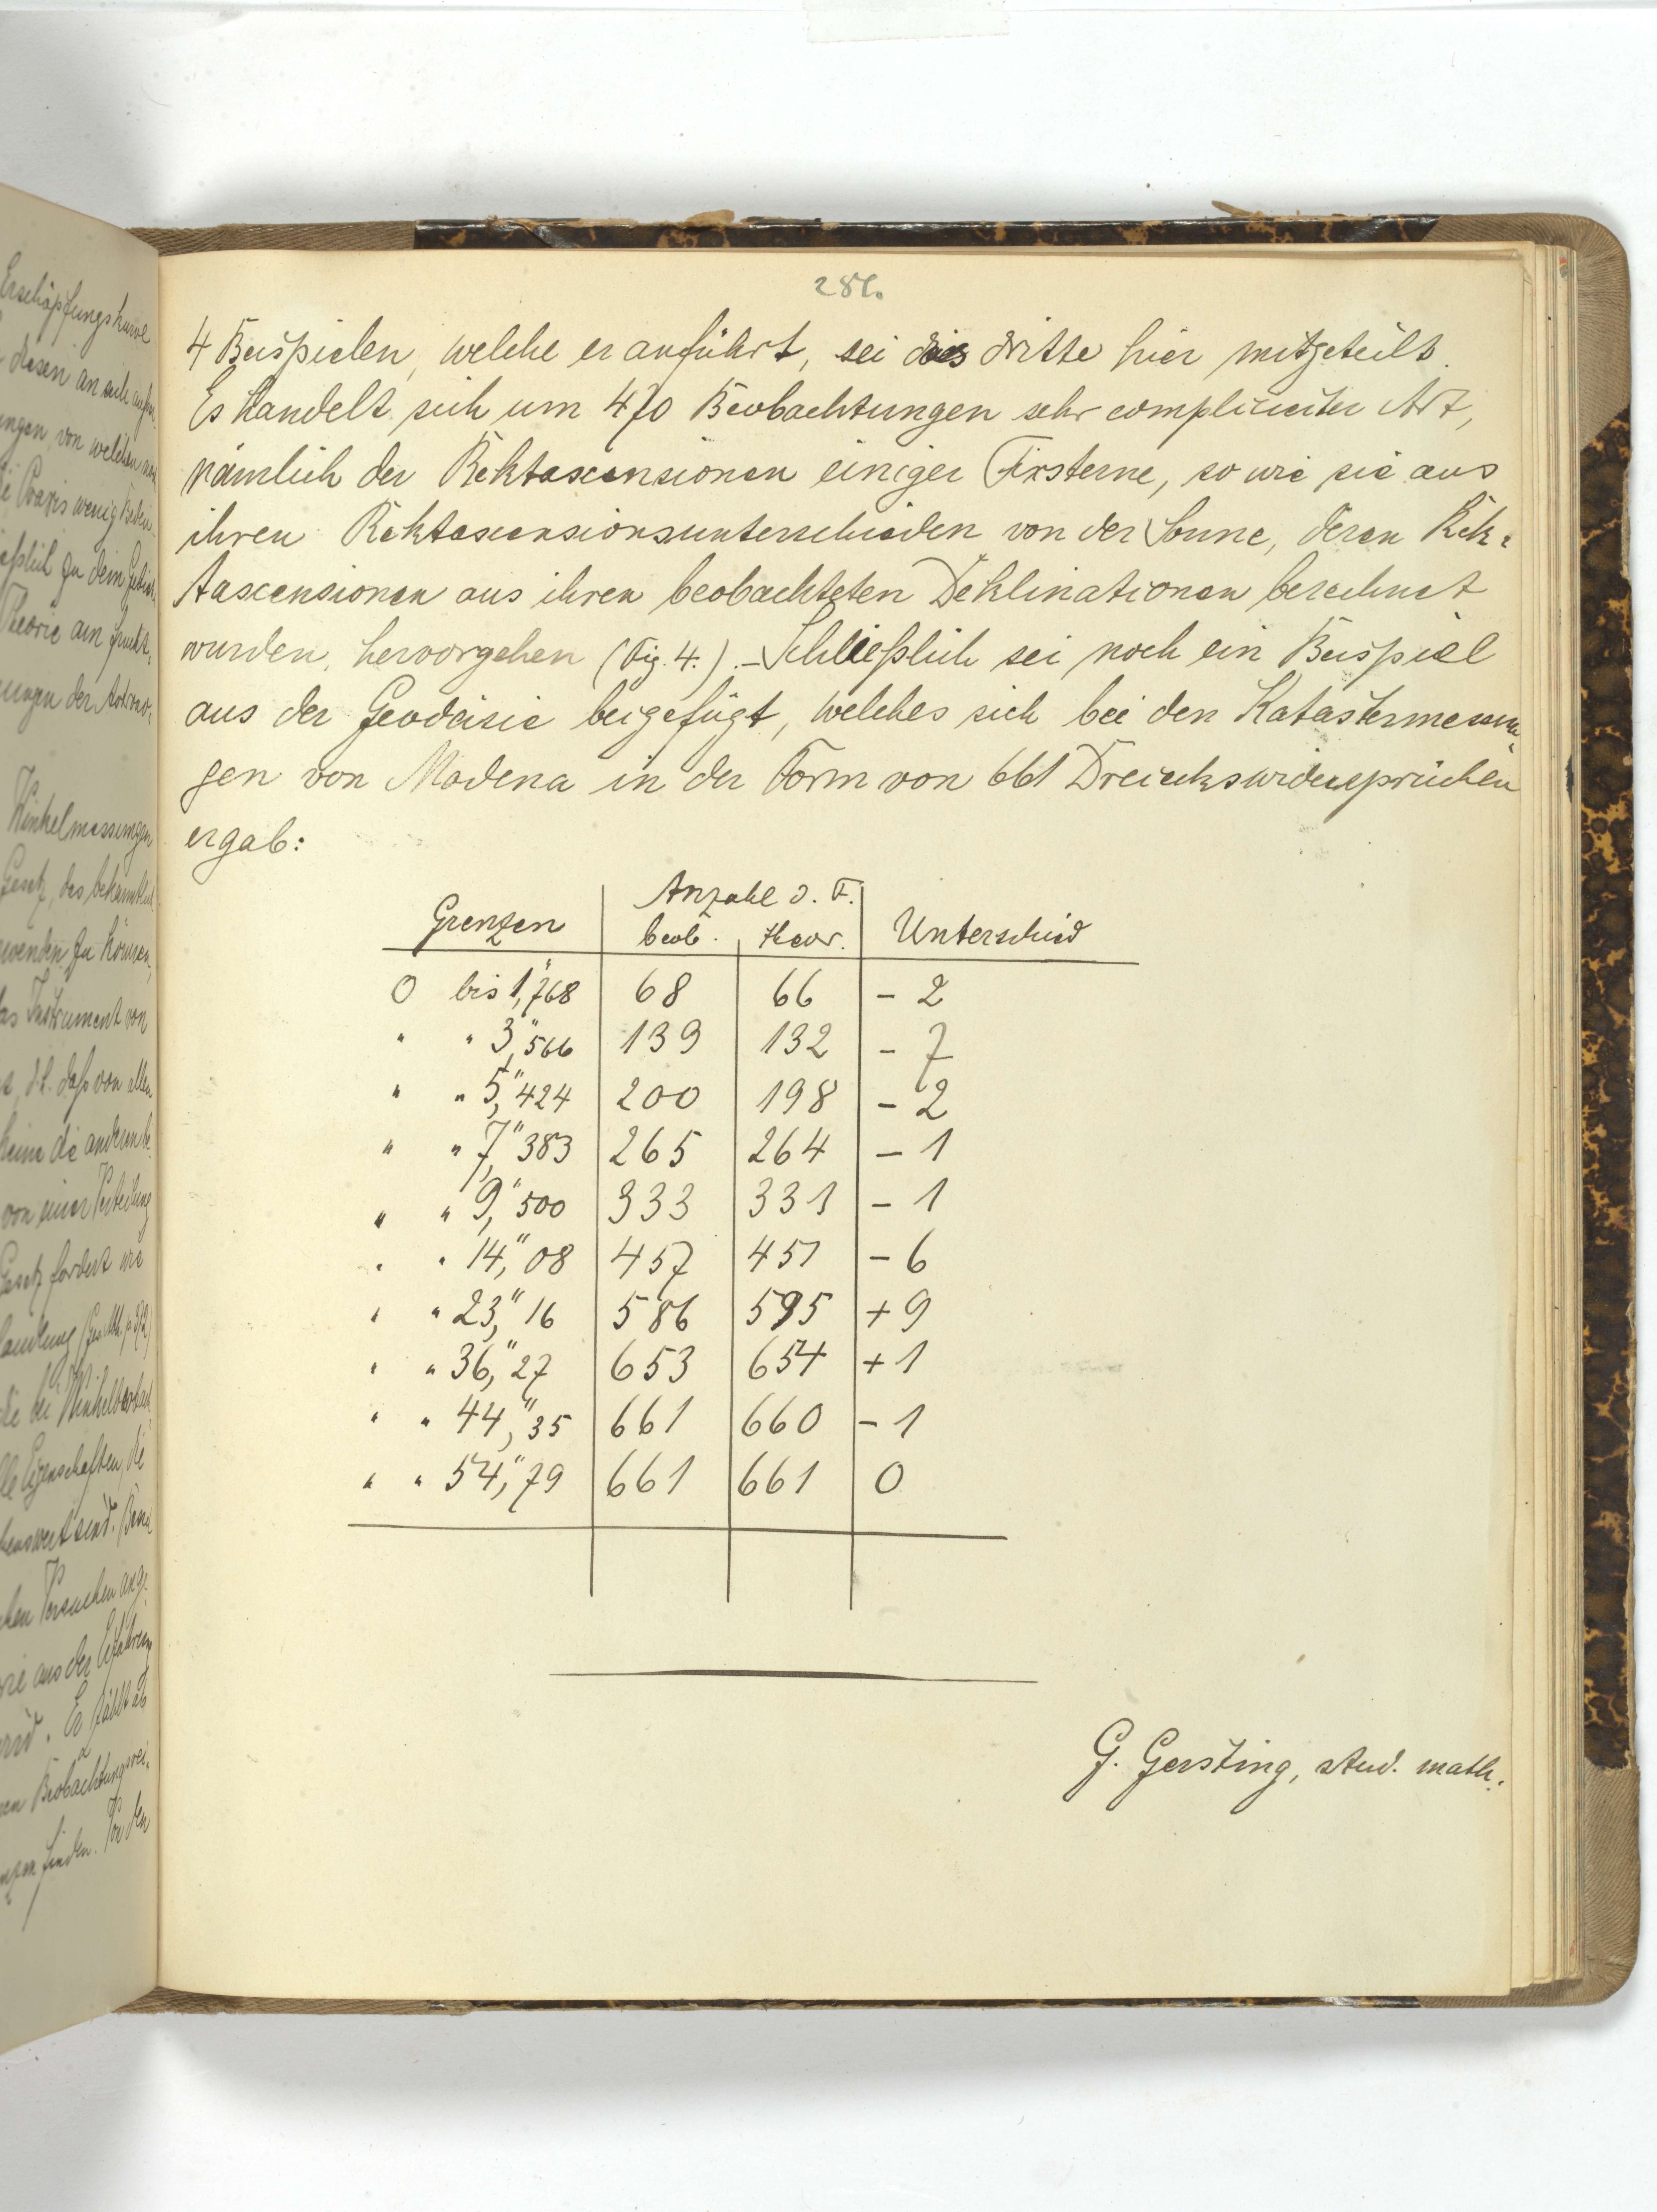 281.
4 Beispielen, welche er anführt, sei das dritte hier mitgeteilt.
Es handelt sich um 470 Beobachtungen sehr complicierter Art,
nämlich der Rektascensionen einiger Fixsterne, so wie sie aus
ihren Rektascensionsunterschieden von der Sonne, deren Rek-
tascensionen aus ihren beobachteten Deklinationen berechnet
wurden, hervorgehen (Fig. 4.). – Schließlich sei noch ein Beispiel
aus der Geodäsie beigefügt, welches sich bei den Katastermessun-
gen von Modena in der Form von 661 Dreieckswidersprüchen
ergab:
Grenzen | Anzahl d. F. beob. | theor. | Unterschied
0 bis 1,"768 | 68 | 66 | - 2
" " 3,"566 | 139 | 132 | - 7
" " 5,"424 | 200 | 198 | - 2
" " 7,"383 | 265 | 264 | - 1
" " 9,"500 | 333 | 331 | - 1
" " 14,"08 | 457 | 451 | - 6
" " 23,"16 | 586 | 595 | + 9
" " 36,"27 | 653 | 654 | + 1
" " 44,"35 | 661 | 660 | - 1
" " 54,"79 | 661 | 661 | 0
G. Gersting, stud. math.
Erschöpfungskurve
diesen an sich
von welchen
Praxis wenig
zu dem
Theorie am
der
Winkelmessungen
Gesetz, das bekanntlich
zu können,
Instrument von
d.h. daß von allen
keine die anderen
von einer Verteilung
Gesetz fordert wie
Eigenschaften, die
sind.
Versuchen
wie aus der Erfahrung
wird. Er zählt ab
Beobachtungsrei-
finden. Von den